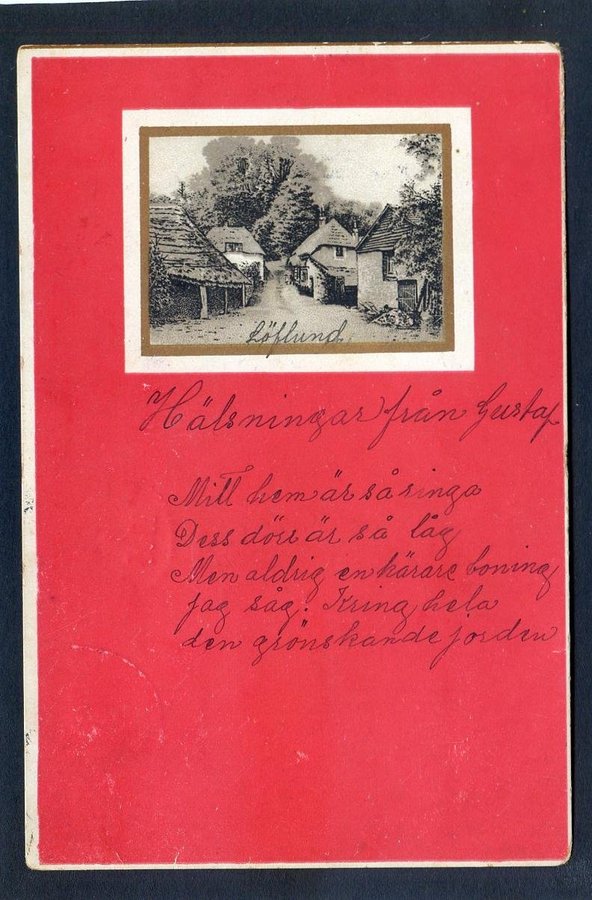 Löflund
Hälsningar från Gustaf
Mitt hem är så ringa
Dess dörr är så låg
Men aldrig en kärare boning
jag såg. Kring hela
den grönskande jorden